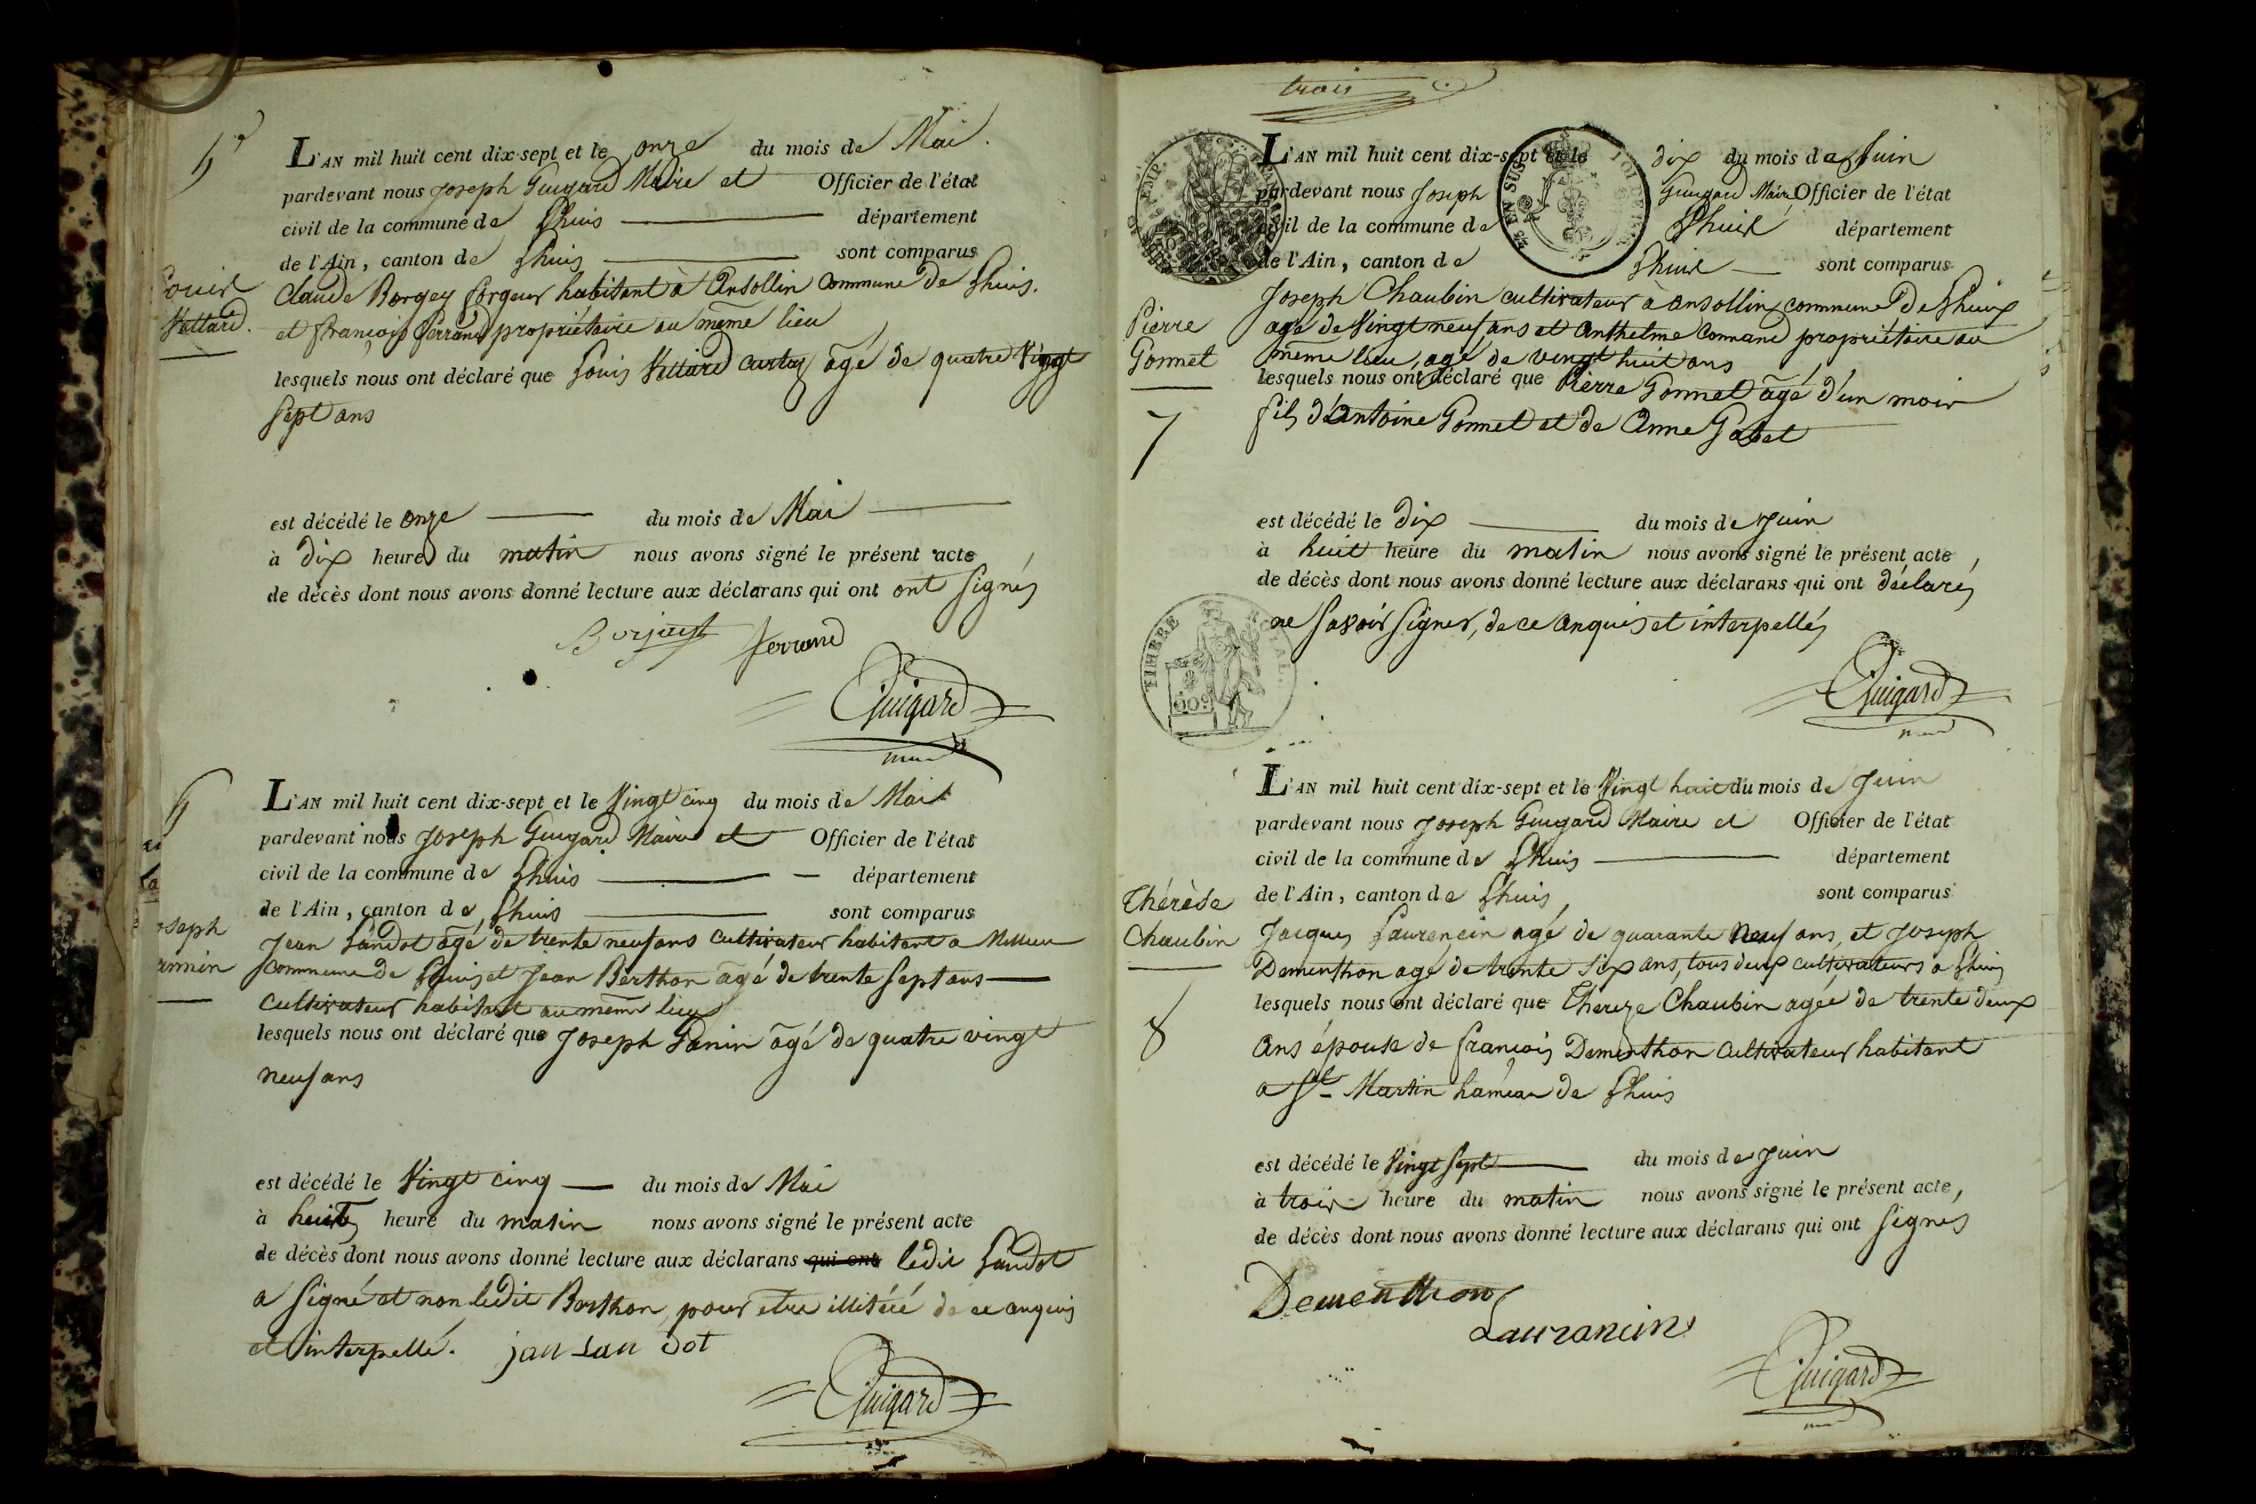 5e
L'AN mil huit cent dix-sept et le onze du mois de Mai
pardevant nous Joseph Guigard Maire et Officier de l'état
civil de la commune de Lhuis département
de l'Ain, canton de Lhuis sont comparus
Louis
Vettard.
Claude Borgey forgeur habitant à Ansollin Commune de Lhuis.
et françois ferrand propriétaire au même lieu
lesquels nous ont déclaré que Louis Vettard âgé de quatre Vingt
Sept ans
est décédé le onze du mois de Mai
à dix heures du matin nous avons signé le présent acte
de décès dont nous avons donné lecture aux déclarans qui ont ont signés
ferrand
Guigard
6
L'AN mil huit cent dix-sept et le Vingt cinq du mois de Mai
pardevant nous Joseph Guigard Maire et Officier de l'état
civil de la commune de Lhuis département
de l'Ain, canton de Lhuis sont comparus
oseph
Jean Landot âgé de trente neuf ans cultivateur habitant a
commune de Lhuis et Jean Berthon âgé de trente sept ans
cultivateur habitant au même lieu
lesquels nous ont déclaré que Joseph âgé de quatre vingt
neuf ans
est décédé le Vingt cinq du mois de Mai
à huit heure du matin nous avons signé le présent acte
de décès dont nous avons donné lecture aux déclarans qui ont ledit Landot
a signé et non ledit Berthon, pour etre illitéré de ce anquis
et interpellé. jan Lan dot
Guigard
trois
L'AN mil huit cent dix-sept et le dix du mois de Juin
pardevant nous Joseph Guigard Maire Officier de l'état
civil de la commune de Lhuis département
de l'Ain, canton de Lhuis sont comparus
EN SUS
Pierre
Gonnet
7
Joseph Chaubin cultivateur à ansollin commune de Lhuis
age de Vingt neuf ans et Anthelme Connand propriétaire au
même lieu, agé de vingt huit ans
lesquels nous ont déclaré que Pierre Gonnet âgé d'un mois
fils d'Antoine Gonnet et de Anne Gabet
est décédé le dix du mois de Juin
à huit heure du matin nous avons signé le présent acte,
de décès dont nous avons donné lecture aux déclarans qui ont déclarés
ne savoir signer, de ce anquis et interpellés
TIMBRE ROYAL.
Guigard
L'AN mil huit cent dix-sept et le Vingt huit du mois de Juin
pardevant nous Joseph Guigard Maire et Officier de l'état
civil de la commune de Lhuis département
de l'Ain, canton de Lhuis, sont comparus
Thérèse
Chaubin
8
Jacques Laurencin agé de quarante neuf ans, et Joseph
Dementhon agé de trente six ans, tous deux cultivateurs a Lhuis
lesquels nous ont déclaré que Thereze Chaubin agée de trente deux
ans épouse de françois Dementhon cultivateur habitant
a St Martin hameau de Lhuis
est décédé le Vingt Sept du mois de Juin
à trois heure du matin nous avons signé le présent acte,
de décès dont nous avons donné lecture aux déclarans qui ont signés
Dementhon
Laurancin
Guigard